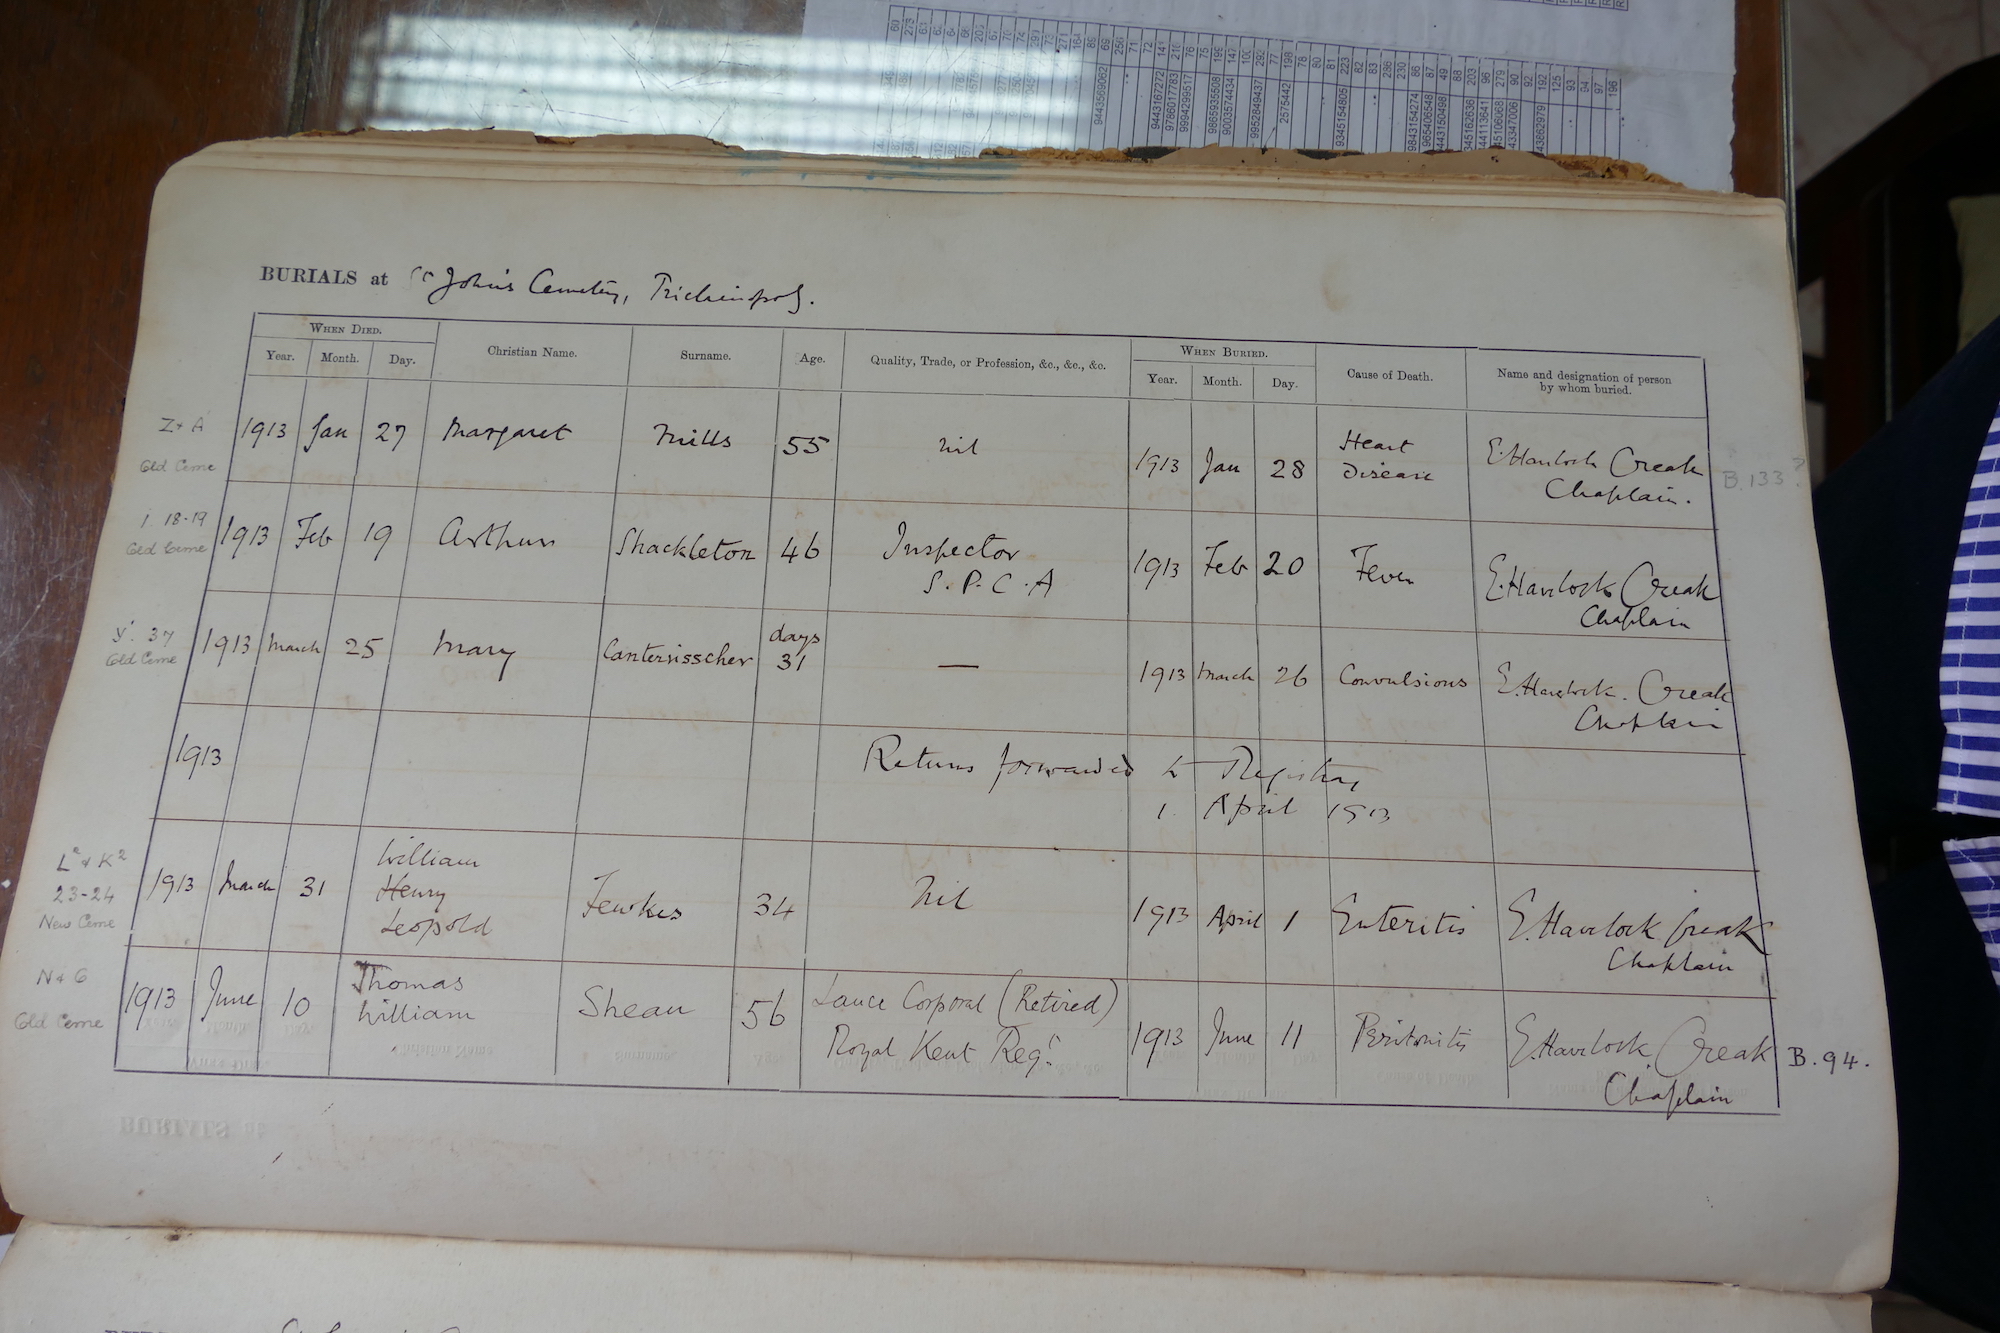 BURIALS at St John's Cemetery, Trichinopoly.
WHEN DIED. Christian Name. Surname. Age. Quality, Trade, or Profession, &c., &c., &c. WHEN BURIED. Cause of Death. Name and designation of person by whom buried.
Year. Month. Day. Year. Month. Day.
Z & A
Old Ceme
1913 Jan 27 Margaret Mills 55 Nil 1913 Jan 28 Heart Disease E. Havelock Creak Chaplain. B.133?
i 18-19
Old Ceme
1913 Feb 19 Arthur Shackleton 46 Inspector S.P.C.A 1913 Feb 20 Fever E. Havelock Creak Chaplain
y' 37
Old Ceme
1913 March 25 Mary Cantervisscher days 31 — 1913 March 26 Convulsions E. Havelock. Creak Chaplain
1913 Returns forwarded to Registrar
1 April 1913
L2 & K2
23-24
New Ceme
1913 March 31 William Henry Leopold Fewkes 34 Nil 1913 April 1 Enteritis E. Havelock Creak Chaplain
N & G
Old Ceme
1913 June 10 Thomas William Shean 56 Lance Corporal (Retired) Royal Kent Regt. 1913 June 11 Peritonitis E. Havelock Creak Chaplain B.94.